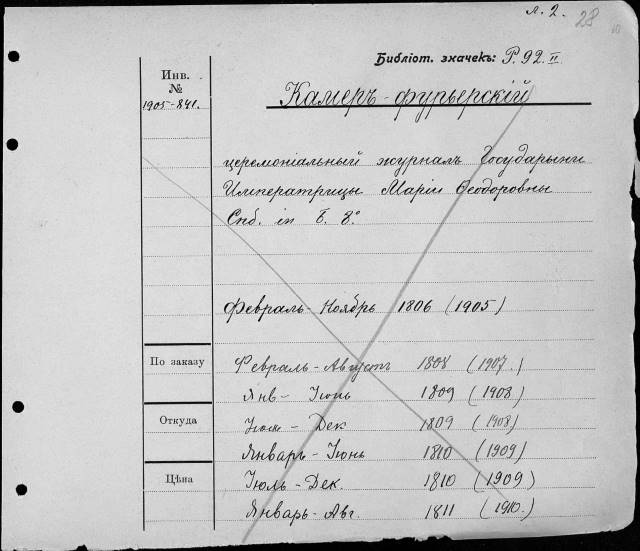 л. 2.
28
Библіот. значекъ: Р. 92. II
Инв.
№
1905-841.
Камеръ-фурьерскій
церемоніальный журналъ Государыни
Императрицы Маріи Ѳеодоровны
Спб. in б. 8°
Февраль-Ноябрь 1806 (1905)
По заказу
Февраль-Августъ 1808 (1907.)
Янв - Іюнь 1809 (1908)
Откуда
Іюль - Дек 1809 (1908)
Январь-Іюнь 1810 (1909)
Цѣна
Іюль-Дек. 1810 (1909)
Январь-Авг. 1811 (1910.)